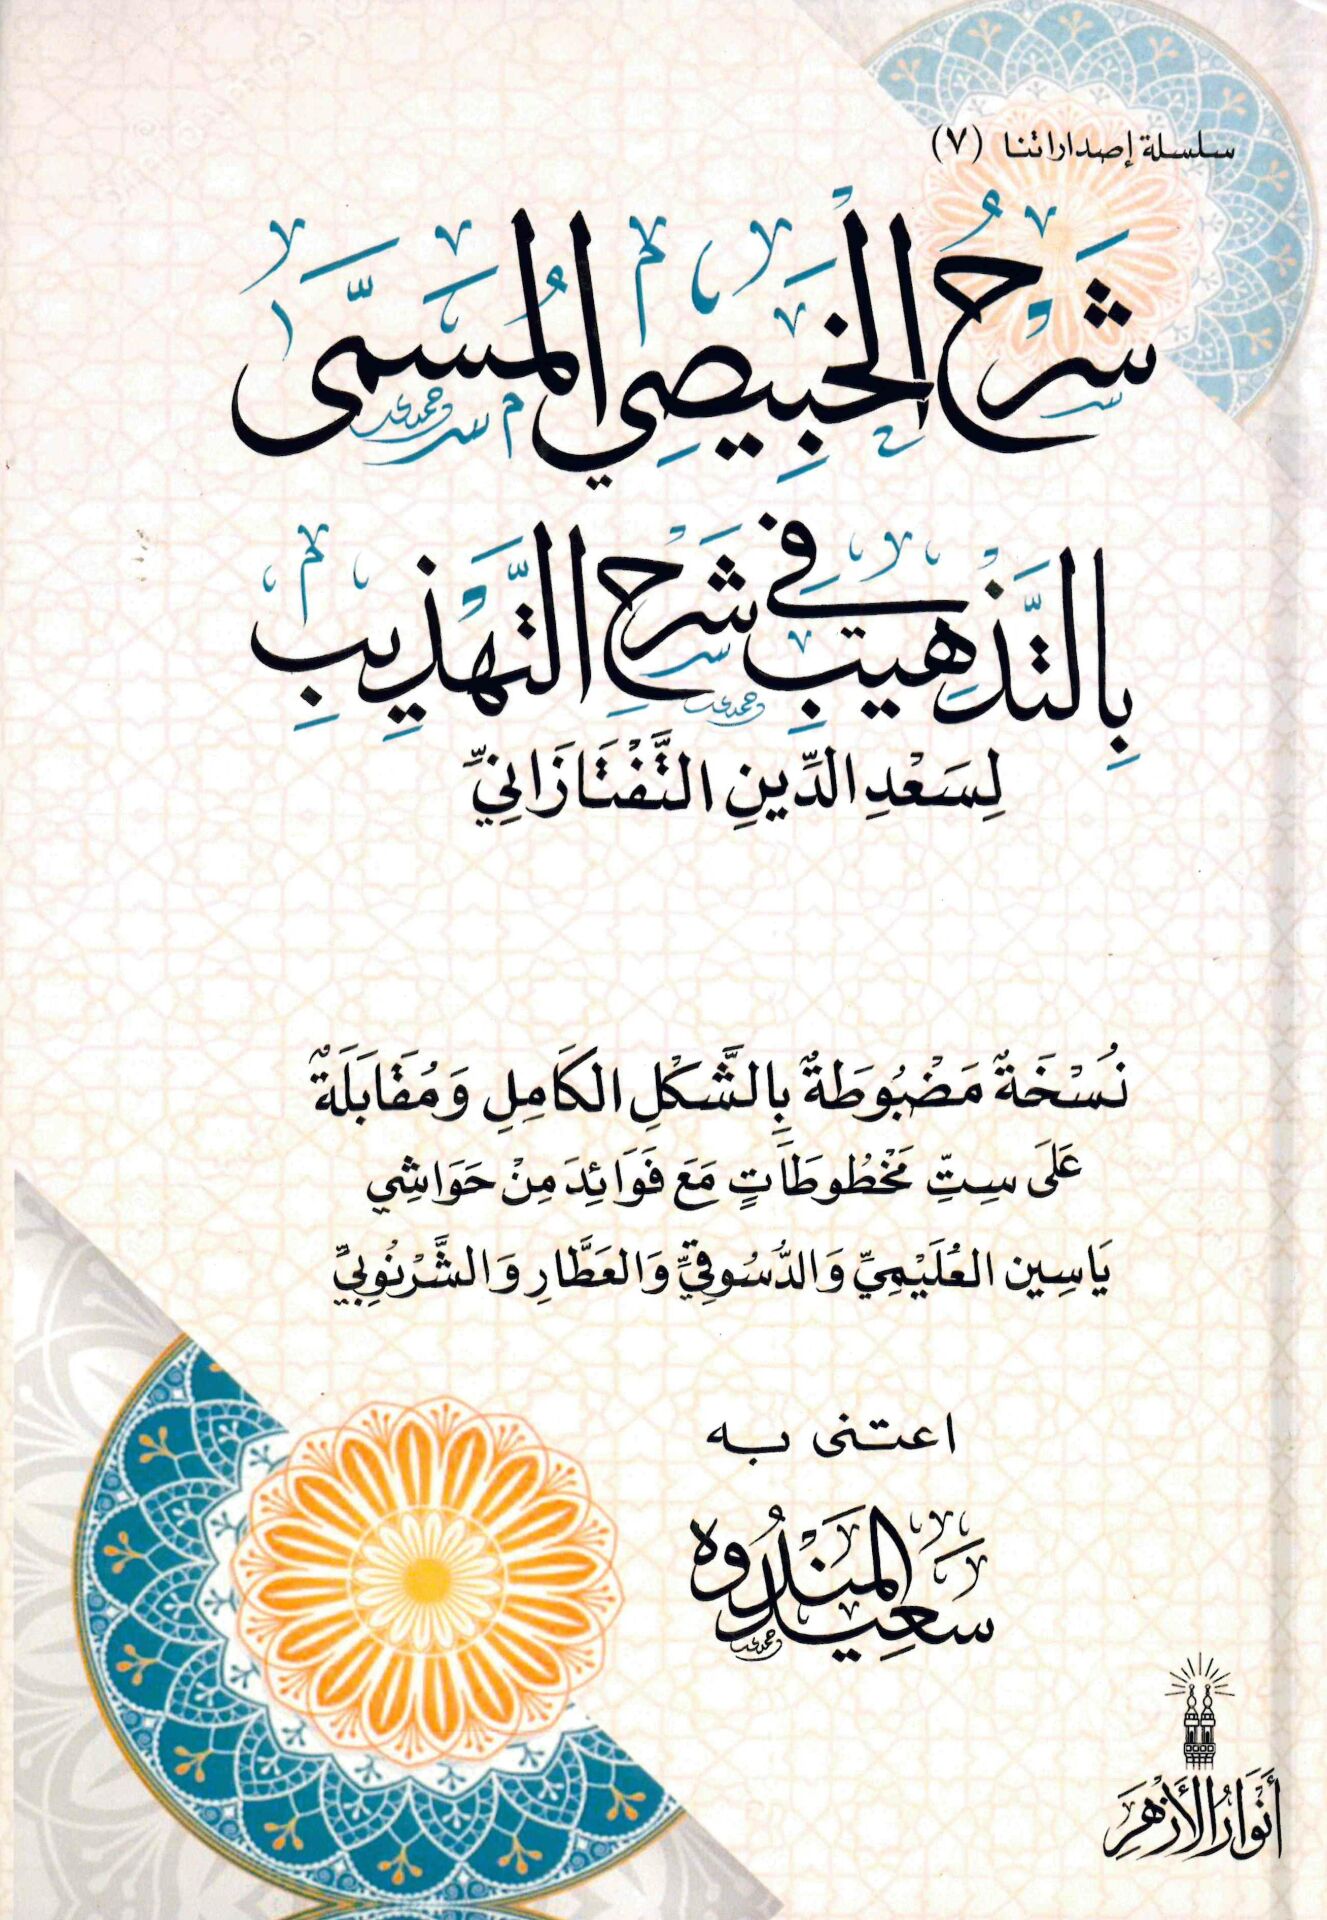 سلسلة إصداراتنا (٧)
شَرْحُ الْخَبِيصِي الْمُسَمَّى
بِالتَّذْهِيبِ فِي شَرْحِ التَّهْذِيبِ
لِسَعْدِ الدِّينِ التَّفْتَازَانِيِّ
نُسْخَةٌ مَضْبُوطَةٌ بِالشَّكْلِ الكَامِلِ وَمُقَابَلَةٌ
عَلَى سِتِّ مَخْطُوطَاتٍ مَعَ فَوَائِدَ مِنْ حَوَاشِي
يَاسِين العُلَيْمِيِّ وَالدُّسُوقِيِّ وَالعَطَّارِ وَالشَّرْنُوبِيِّ
اعتنى به
سَعِيد المَنْدُوه
أَنْوَارُ الأَزْهَرِ